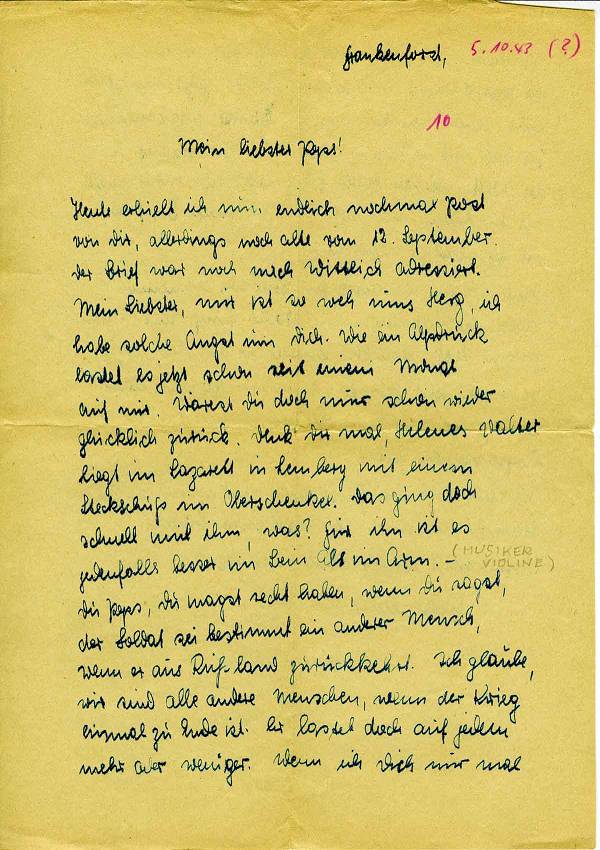 Frankenforst, 5.10.43 (?)
10
Mein liebster Peps!
Heute erhielt ich nun endlich nochmal Post
von dir, allerdings noch alte vom 12. September.
der Brief war noch nach Wittlich adressiert.
Mein Liebster, mir ist so weh ums Herz, ich
habe solche Angst um dich. Wie ein Alpdrück
lastet es jetzt schon seit einem Monat
auf mir. Wärest du doch nur schon wieder
glücklich zurück. Denk dir mal, Helenes Walter
liegt im Lazarett in Lemberg mit einem
Steckschuß im Oberschenkel. Das ging doch
schnell mit ihm, was? Für ihn ist es
jedenfalls besser im Bein als im Arm. – (MUSIKER
VIOLINE)
Du Peps, du magst recht haben, wenn du sagst,
der Soldat sei bestimmt ein anderer Mensch,
wenn er aus Rußland zurückkehrt. Ich glaube,
wir sind alle andere Menschen, wenn der Krieg
einmal zu Ende ist. Er lastet doch auf jedem
mehr oder weniger. Wenn ich dich nur mal